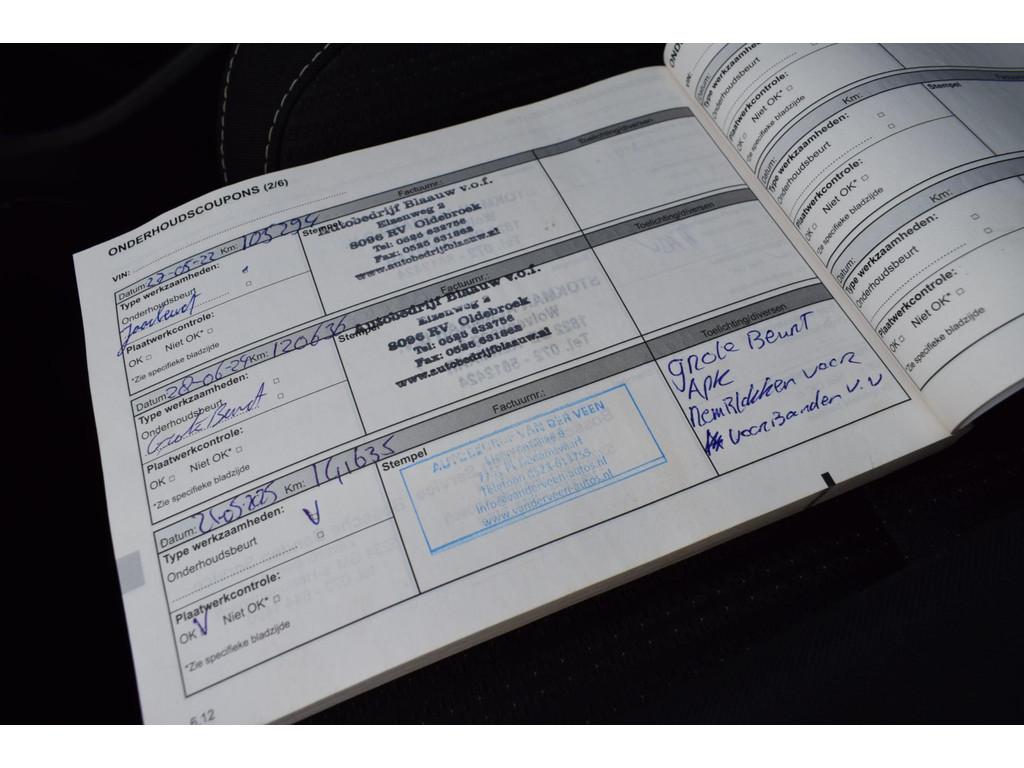 ONDERHOUDSCOUPONS (2/6)
VIN:
Datum: 22-05-22 Km: 105294
Factuurnr.:
Toelichting/diversen
Type werkzaamheden:
Onderhoudsbeurt
Jaarbeurt
Plaatwerkcontrole:
OK Niet OK*
*Zie specifieke bladzijde
Stempel
Autobedrijf Blaauw v.o.f.
Eizenweg 2
8096 RV Oldebroek
Tel: 0525 632756
Fax: 0525 631868
www.autobedrijfblaauw.nl
Datum: 28-06-24 Km: 120636
Factuurnr.:
Toelichting/diversen
Type werkzaamheden:
Onderhoudsbeurt
Grote Beurt
Plaatwerkcontrole:
OK Niet OK*
*Zie specifieke bladzijde
Stempel
Autobedrijf Blaauw v.o.f.
Eizenweg 2
8096 RV Oldebroek
Tel: 0525 632756
Fax: 0525 631868
www.autobedrijfblaauw.nl
Datum: 21-05-2025 Km: 141635
Factuurnr.:
Toelichting/diversen
Type werkzaamheden: V
Onderhoudsbeurt
Plaatwerkcontrole:
OK V Niet OK*
*Zie specifieke bladzijde
Stempel
AUTOBEDRIJF VAN DER VEEN
Telefoon 0523-613755
info@vanderveen-autos.nl
www.vanderveen-autos.nl
grote Beurt
APK
voor
voorBanden v.v
6.12
VIN:
Datum:
Type werkzaamheden:
Onderhoudsbeurt
Plaatwerkcontrole:
OK Niet OK*
*Zie specifieke bladzijde
Km:
Stempel
Datum:
Type werkzaamheden:
Onderhoudsbeurt
Plaatwerkcontrole:
OK Niet OK*
*Zie specifieke bladzijde
Km:
Datum:
Type werkzaamheden:
Onderhoudsbeurt
Plaatwerkcontrole:
OK Niet OK*
*Zie specifieke bladzijde